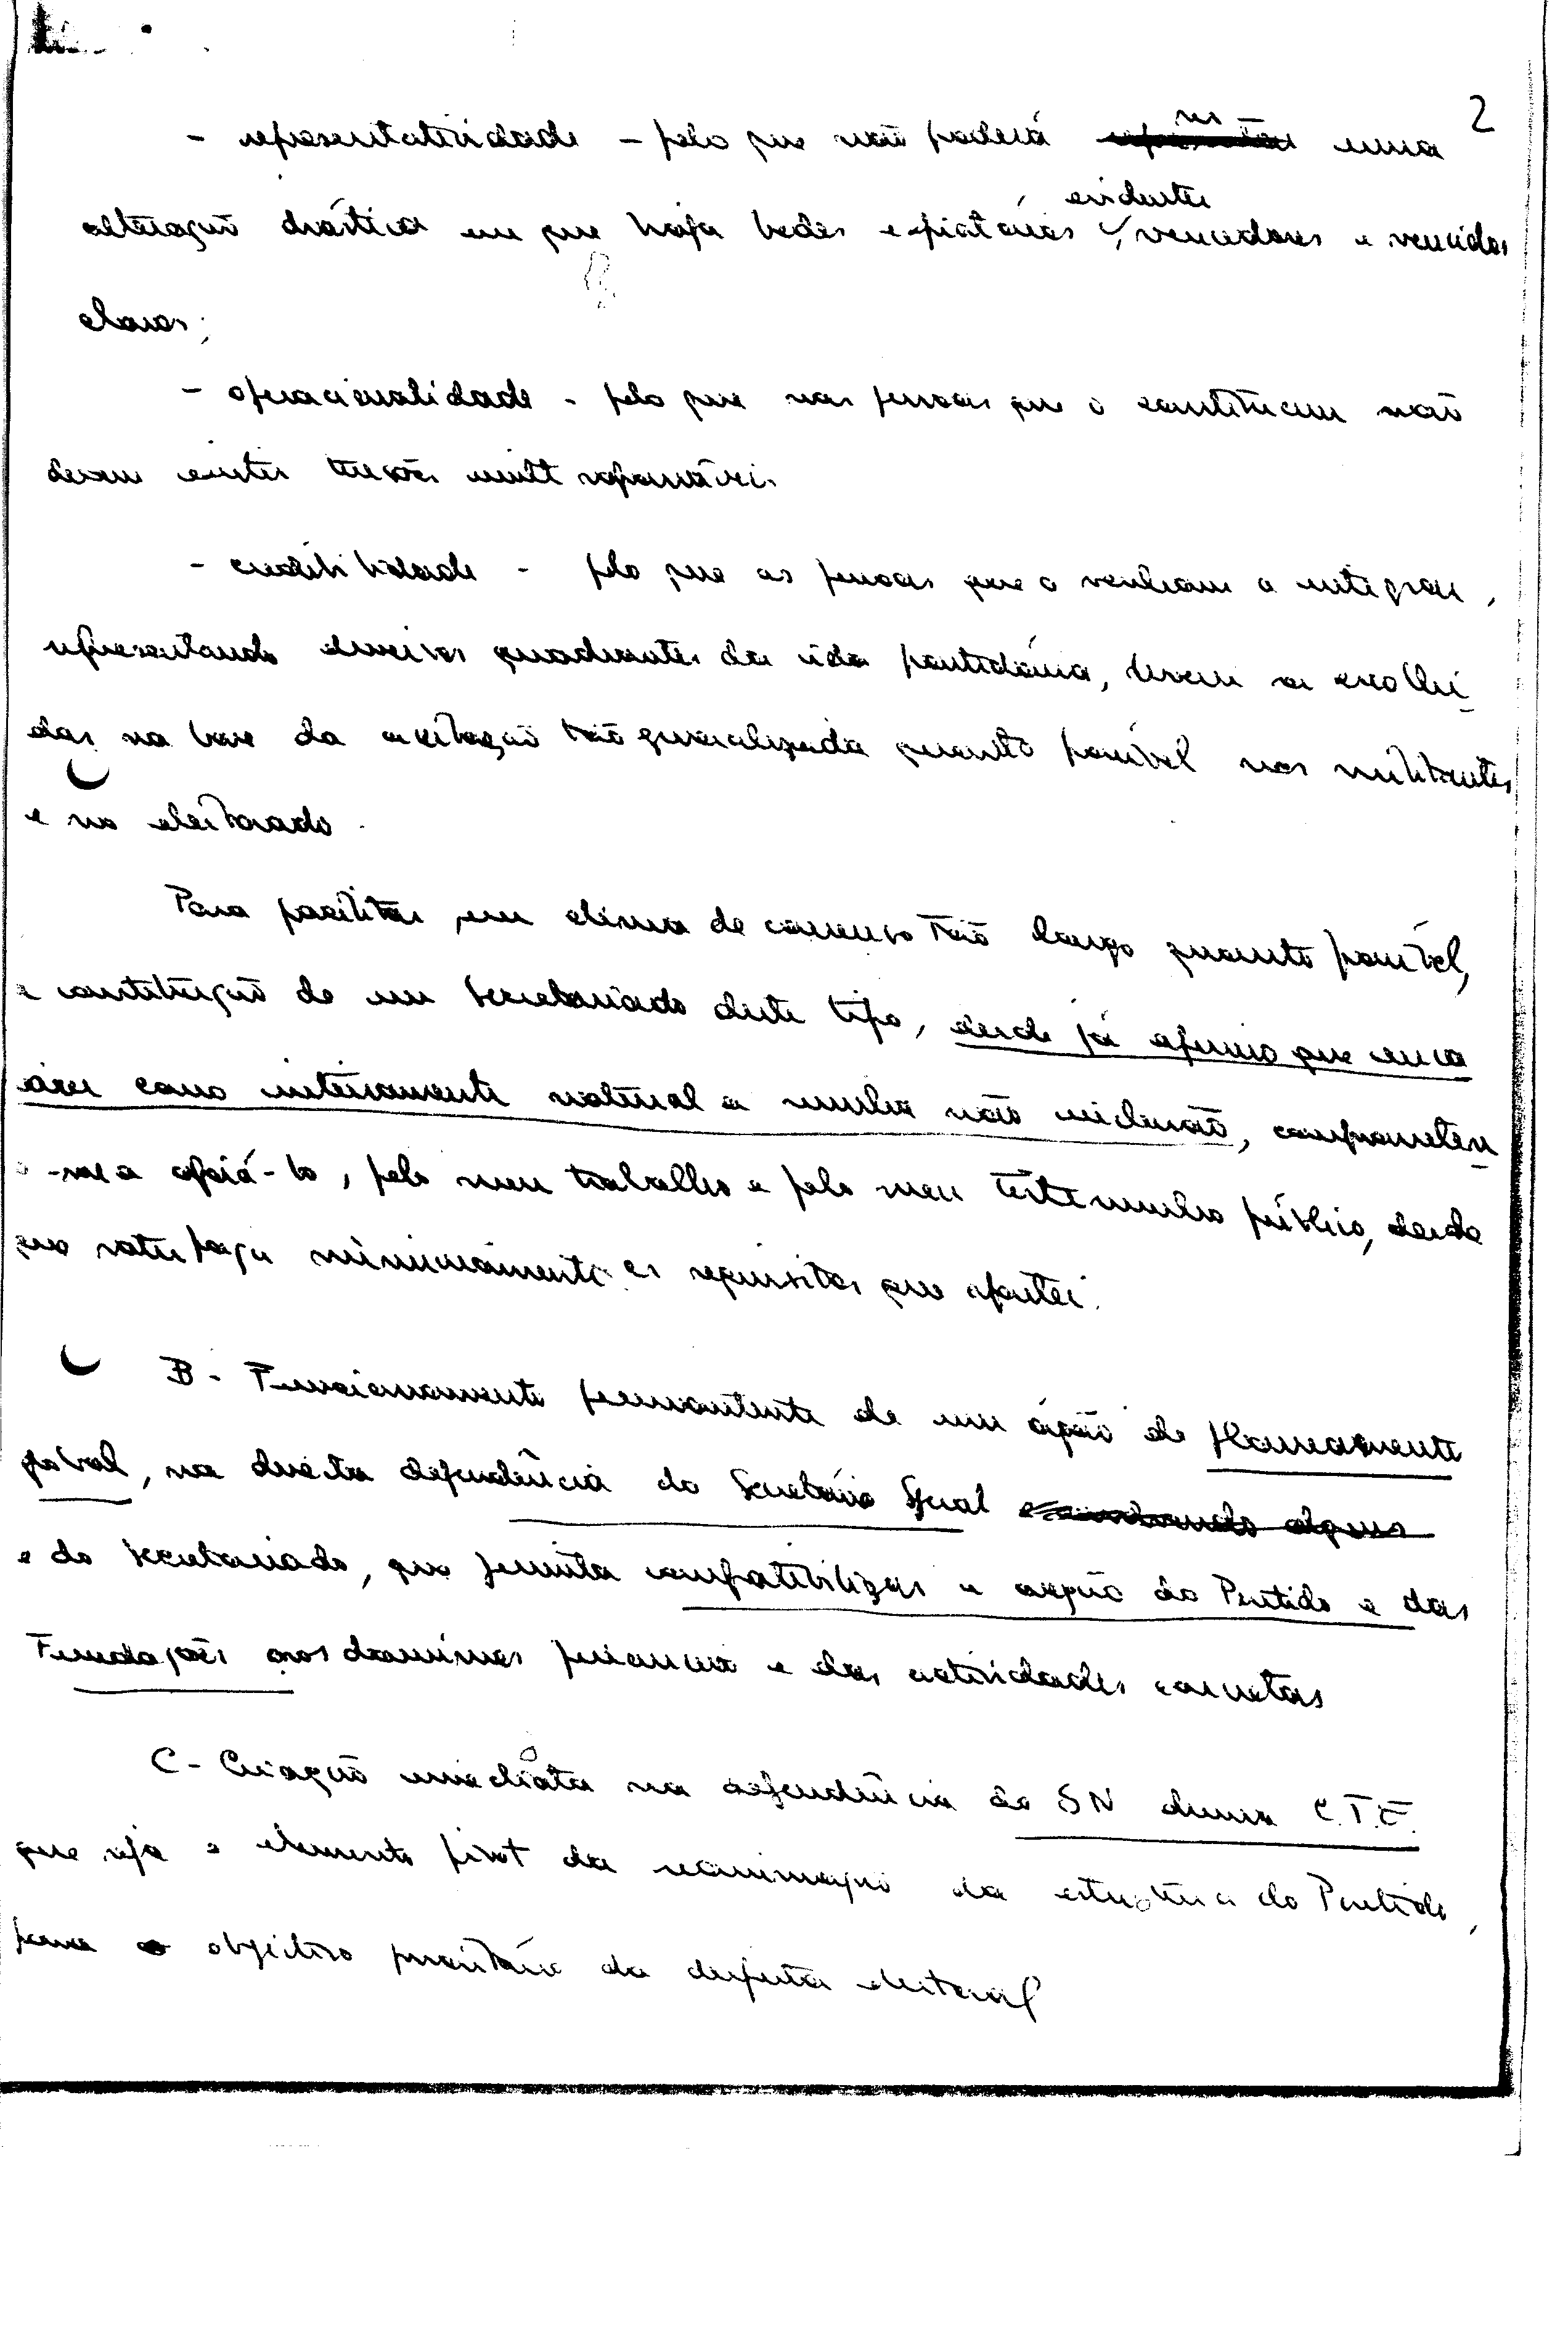 2
- representatividade - pelo que não poderá ser uma
alteração drástica em que haja bodes expiatórios, evidentes vencedores e vencidos
claros;
- operacionalidade - pelo que nas pessoas que o constituem não
devem existir tensões
- credibilidade - pelo que as pessoas que o venham a integrar,
representando diversos quadrantes da vida partidária, devem ser escolhi-
das na base da aceitação tão generalizada quanto possível nos militantes
e no eleitorado.
Para facilitar, num clima de consenso tão largo quanto possível,
a constituição de um Secretariado deste tipo, desde já afirmo que enca
raria como inteiramente natural a minha não inclusão, comprometen-
do-me a apoiá-lo, pelo meu trabalho e pelo meu testemunho público, desde
que satisfaça minimamente os requisitos que apontei.
B - Funcionamento permanente de um órgão de planeamento
global, na directa dependência do Secretário Geral
e do Secretariado, que permita compatibilizar a acção do Partido e das
Fundações nos domínios financeiro e das actividades conexas
C - Criação imediata na dependência do SN duma C.T.E.
que seja o elemento pivot da reanimação da estrutura do Partido,
para o objectivo prioritário da disputa eleitoral